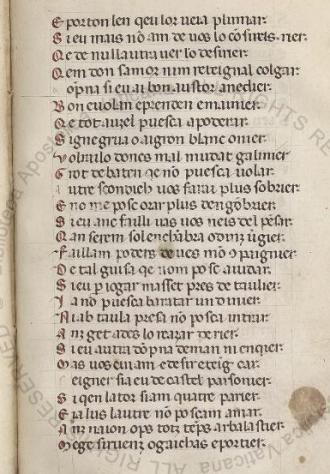 E por ton len qeu lor ueia plumar.
S ieu mais nō am de uos lo cōsueis. rier.
Q e de nulla utra uer lo desirier.
Q em don samor nim reteignal colgar.
dōpna si eu ai bon austor anedier.
B on e uolan e prenden e maunier.
Q e tot auzel puesca apoderar.
S igne grua o aigron blanc o nier.
uolrailo dones mal mudat galinier
G rot de batren qe nō puesca uolar.
A utre scondich uos farai plus sobrier.
E no me posc orar plus dengōbrier.
S ieu anc failli uas uos neis del pēsar.
Q an serem sol en chābra o dinz ūgier.
F aillam poders de ues mō cōpaignier.
D e tal guisa qe nom posc aiudar.
S ieu per iogar masset pres de taulier.
I a nō puesca baratar un dinier.
N i ab taula presa nō posca intrar.
A nz get ades lo reazar derier.
S ieu autra dōpna deman ni enquier.
M as uos eui am e desir e teig car.
Seigner sia eu de castel parsonier.
S i qen la tor siam quatre parier.
E ia lus lautre nō poscam amar.
A nz maion ops totz tēps arbalastier
M ege siruenz e gaichas e portier.